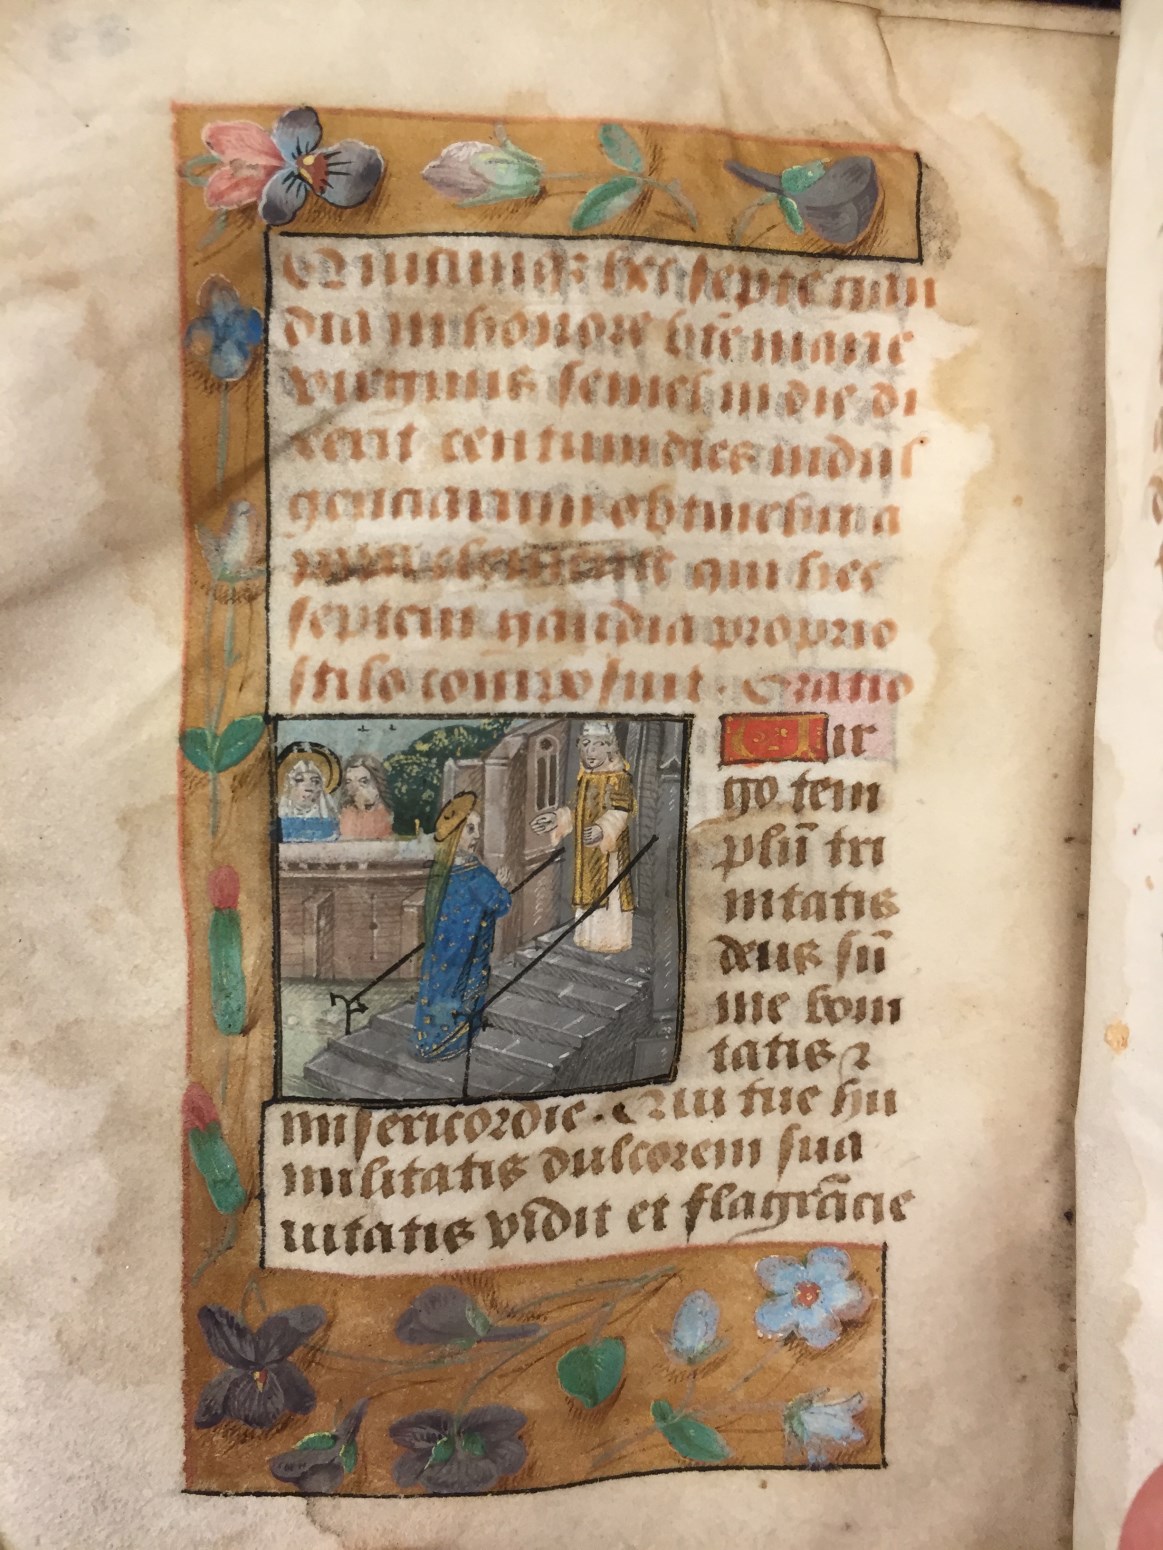 Quicunqz hec septē gau
dia in honore btē marie
virginis semel in die di
xerit centum dies indul
genciarum obtinebit a
qui hec
septem gaudia proprio
stilo composuit. Oratio
Vir
go tem
plū tri
nitatis
deus sū
me boni
tatis ꝛ
misericordie. Qui tue hu
militatis dulcorem sua
uitatis vidit et flagrācie